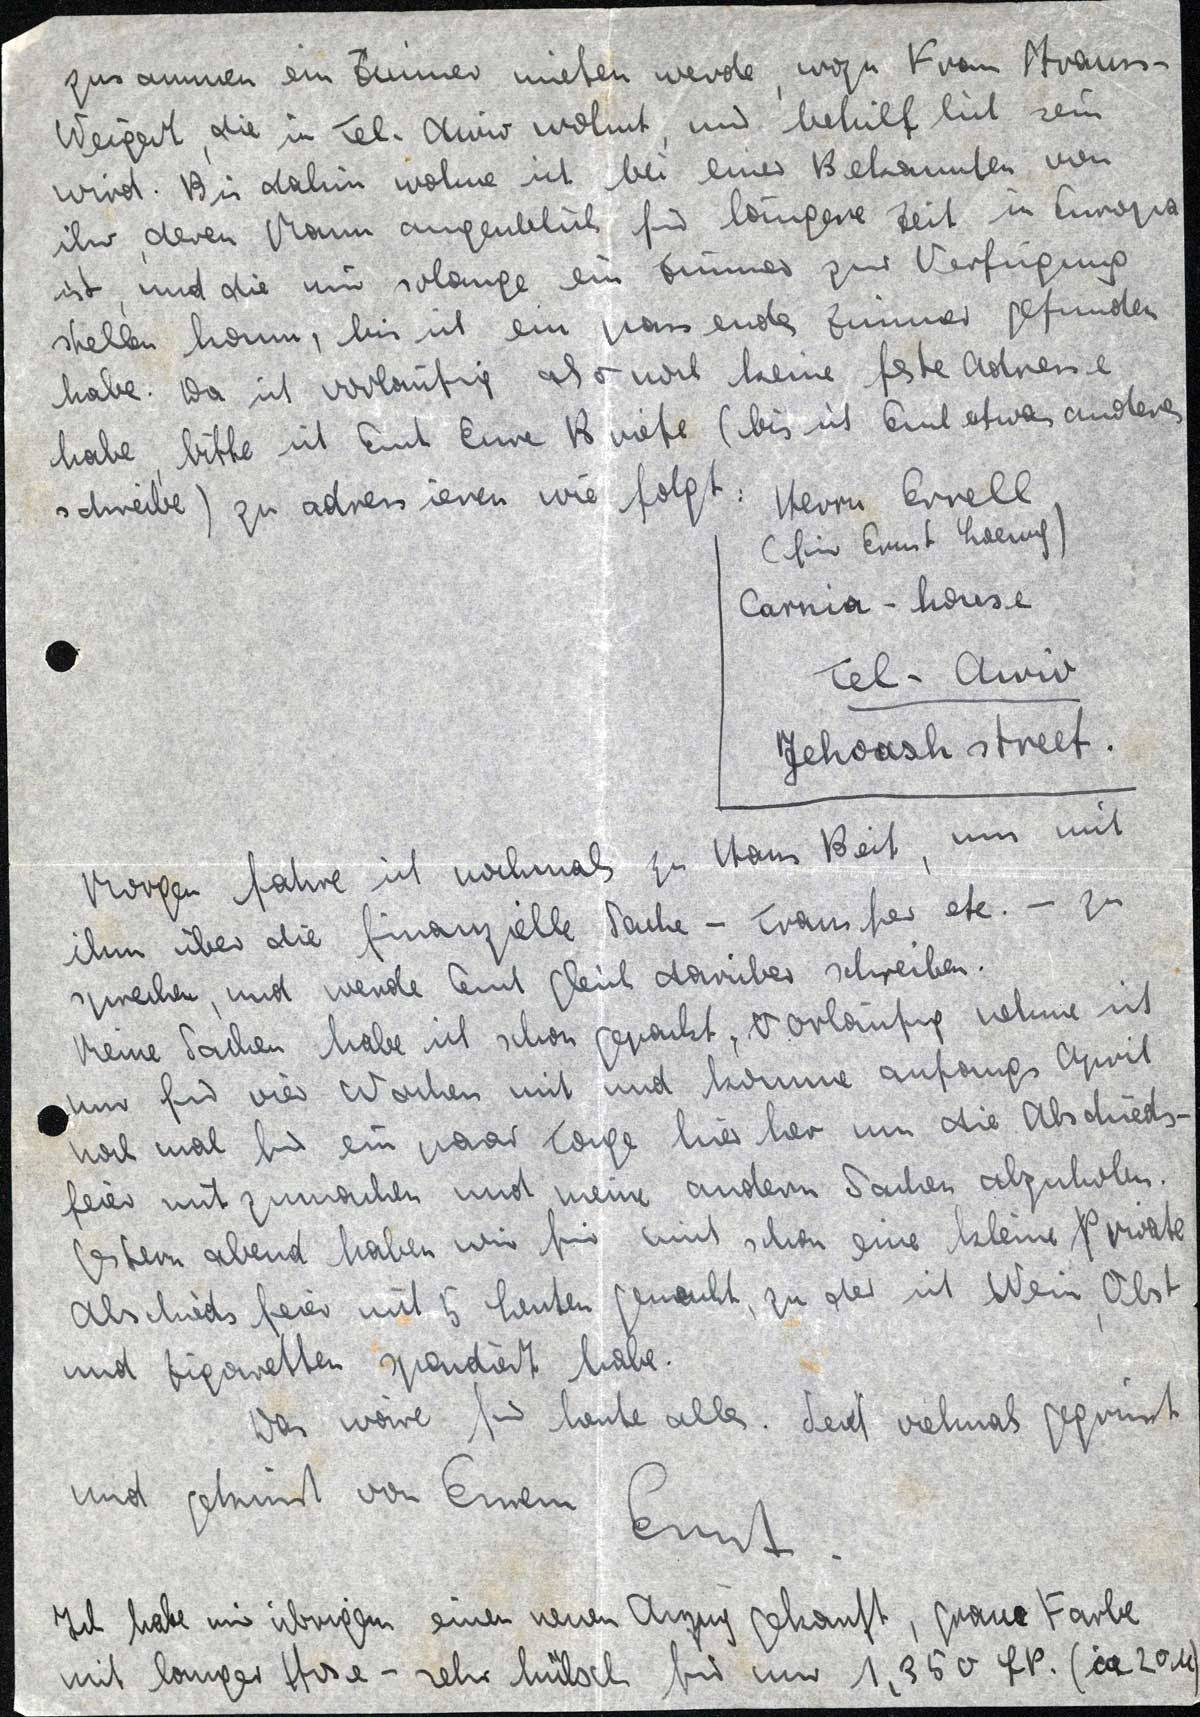 zusammen ein Zimmer mieten werde, wozu Frau Strauss-
Weigert, die in Tel-Awiw wohnt, uns behilflich sein
wird. Bis dahin wohne ich bei einer Bekannten von
ihr, deren Mann augenblickl. für längere Zeit in Europa
ist, und die mir solange ein Zimmer zur Verfügung
stellen kann, bis ich ein passendes Zimmer gefunden
habe. Da ich vorläufig also noch keine feste Adresse
habe, bitte ich Euch Eure Briefe (bis ich Euch etwas anderes
schreibe) zu adressieren wie folgt: Herrn Errell
(für Ernst Loewy)
Carnia-house
Tel-Awiw
Jehoash street.
Morgen fahre ich nochmals zu Hans Beit, um mit
ihm über die finanzielle Sache – Transfer etc. – zu
sprechen, und werde Euch gleich darüber schreiben.
Meine Sachen habe ich schon gepackt, Vorläufig nehme ich
nur für vier Wochen mit und komme anfangs April
noch mal für ein paar Tage hierher um die Abschieds-
feier mitzumachen und meine andern Sachen abzuholen.
Gestern abend haben wir für mich schon eine kleine Private
Abschiedsfeier mit 5 Leuten gemacht, zu der ich Wein, Obst
und Zigaretten spendiert habe.
Das wäre für heute alles. Seid vielmals gegrüsst
und geküsst von Eurem Ernst.
Ich habe mir übrigens einen neuen Anzug gekauft, graue Farbe
mit langer Hose – sehr hübsch für nur 1,350 £P. (ca 20 M)